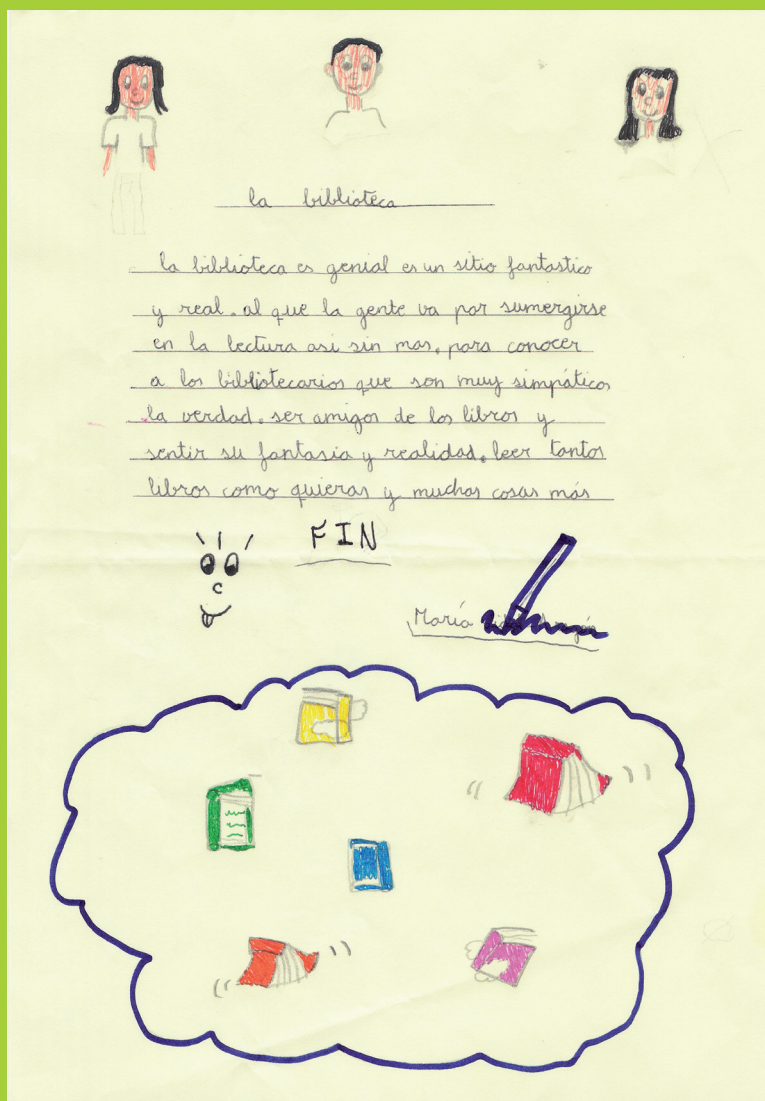 la biblioteca
la biblioteca es genial es un sitio fantastico
y real. al que la gente va por sumergirse
en la lectura asi sin mas. para conocer
a los bibliotecarios que son muy simpáticos
la verdad. ser amigos de los libros y
sentir su fantasia y realidad. leer tantos
libros como quieras y muchas cosas más
FIN
María